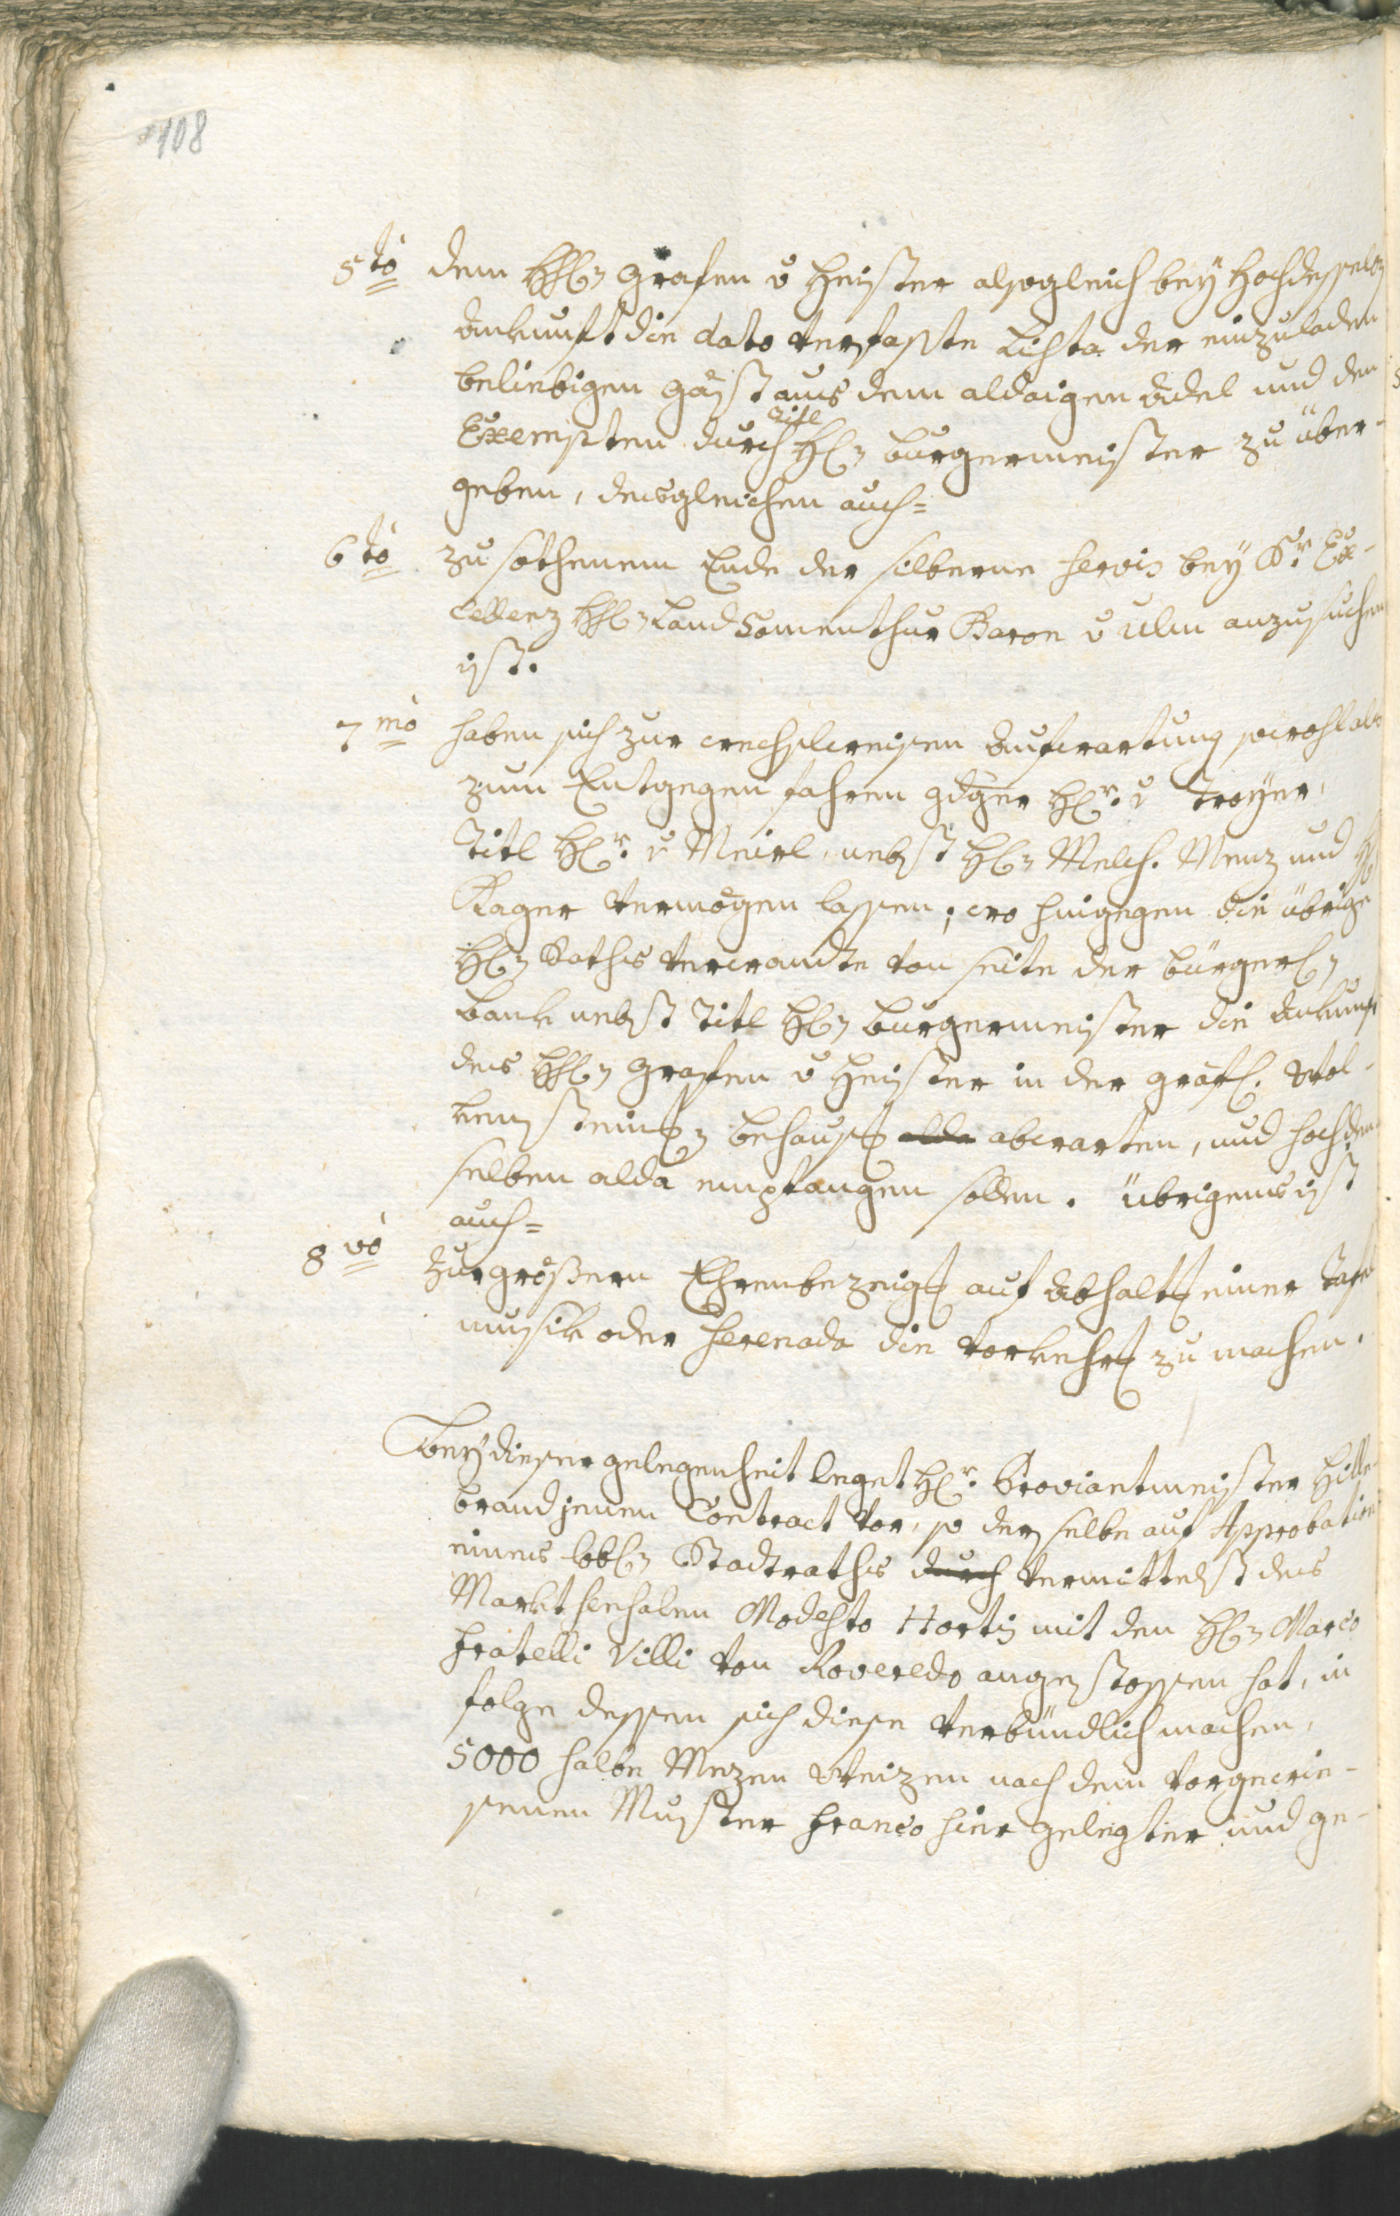 108
5tò dem HH. Grafen v Heister alsogleich bey Hochdesselben
Ankunft die dato verfaßte Lista der einzuladen
beliebigen Gäst aus dem aldaigen Adel und den
Exempten durch Titl H. Burgermeister zu über-
geben, desgleichen auch=
6tò zu sothenem Ende der silberne Servis bey Sr. Ex-
cellenz HH. Land Comenthur Baron v Ulm anzusuchen
ist.
7mò haben sich zur wechslweisen Aufwartung sowohl als
zum Entgegen fahren gdger Hr. v Troyer,
Titl Hr. v Meirl, nebst H. Melch. Menz und H
Rager vermögen lassen; wo hingegen die übrige
H. Raths verwandte von seite der bürgerl.
Bank nebst Titl H. Burgermeister die Ankunft
des HH. Grafen v Heister in der gräfl. Wol-
kensteinischen Behausung alda abwarten, und hochden
selben alda empfangen sollen. Übrigens ist
auch=
8vò zur größern Ehrenbezeigung auf Abhaltung einer Tafel
musik oder Serenada die Vorkehrung zu machen.
Bey dieser gelegenheit leget Hr. Proviantmeister Hille-
brand jenen Contract vor, so derselbe auf Approbation
eines löbl. Stadtraths durch vermittelst des
Markt sensalen Modesto Hortis mit den H. Marco
Fratelli Villi von Roveredo angestossen hat, in
folge dessen sich diese verbündlich machen,
5000 halbe Mezen Weizen nach dem vorgewie-
senen Muster franco hier gelegter und ge-